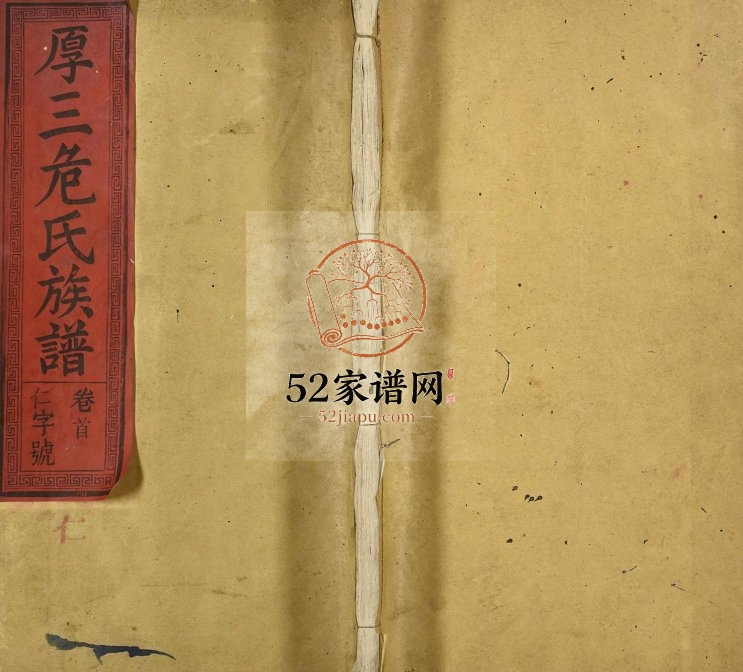 厚三危氏族譜
卷首
仁字號
仁
52家谱网
52jiapu.com